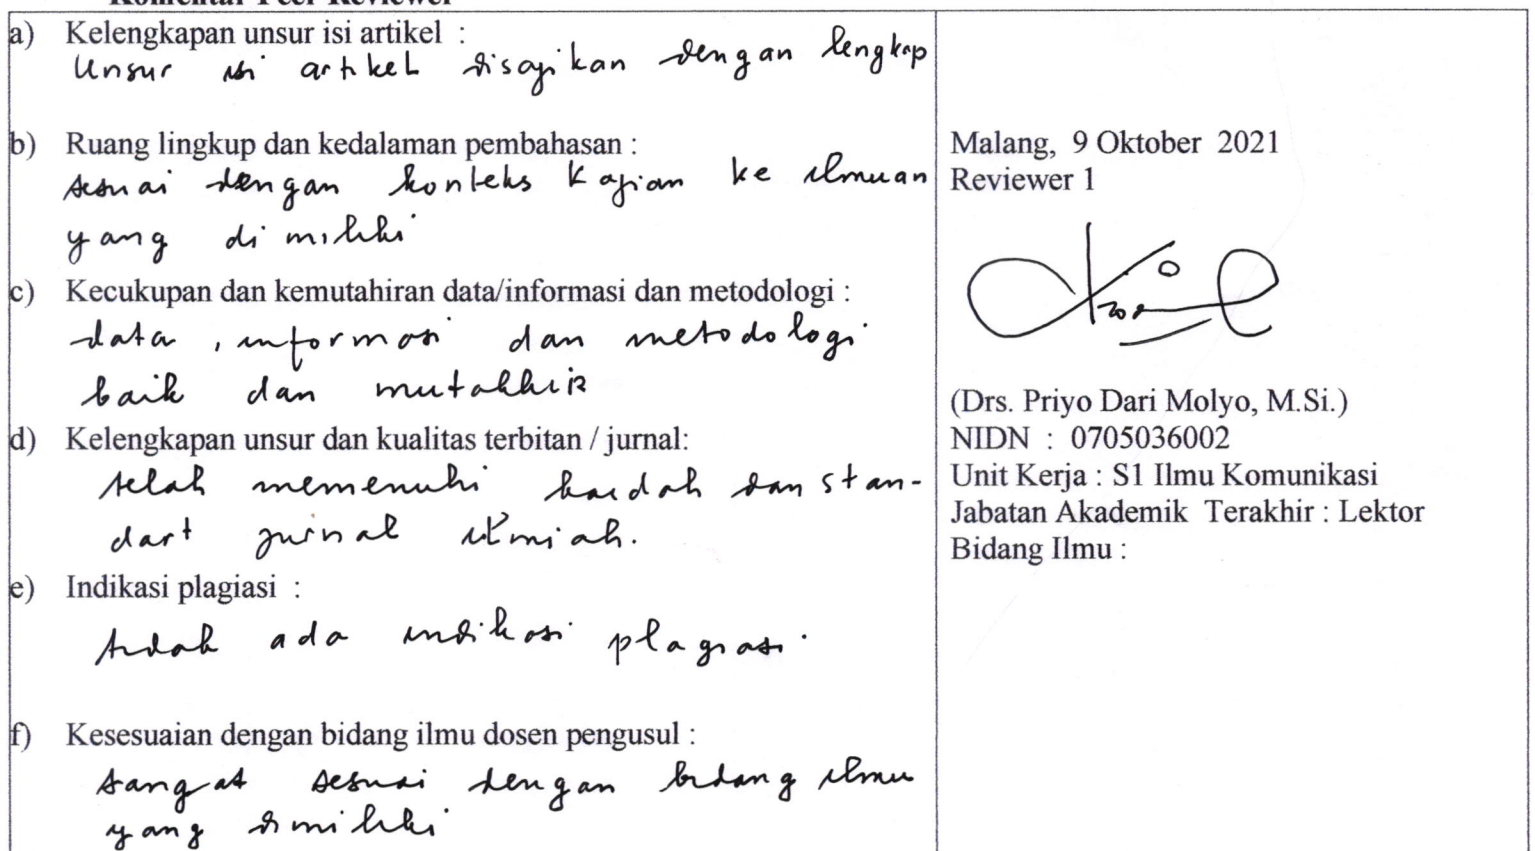 Komentar Peer Reviewer
a) Kelengkapan unsur isi artikel :
Unsur isi artikel disajikan dengan lengkap
b) Ruang lingkup dan kedalaman pembahasan :
sesuai dengan konteks kajian ke ilmuan
yang di miliki
c) Kecukupan dan kemutahiran data/informasi dan metodologi :
data, informasi dan metodologi
baik dan mutakhir
d) Kelengkapan unsur dan kualitas terbitan / jurnal:
telah memenuhi kaidah dan stan-
dart jurnal ilmiah.
e) Indikasi plagiasi :
tidak ada indikasi plagiasi.
f) Kesesuaian dengan bidang ilmu dosen pengusul :
sangat sesuai dengan bidang ilmu
yang dimiliki
Malang, 9 Oktober 2021
Reviewer 1
(Drs. Priyo Dari Molyo, M.Si.)
NIDN : 0705036002
Unit Kerja : S1 Ilmu Komunikasi
Jabatan Akademik Terakhir : Lektor
Bidang Ilmu :